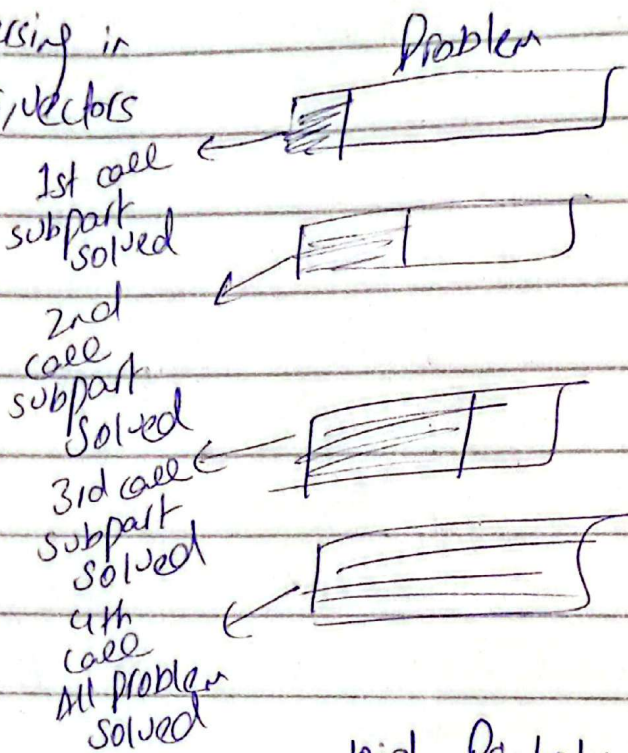 Problem
ursing in
vectors
1st call
subpart
solved
2nd
call
subpart
solved
3rd call
subpart
solved
4th
call
All Problem
solved